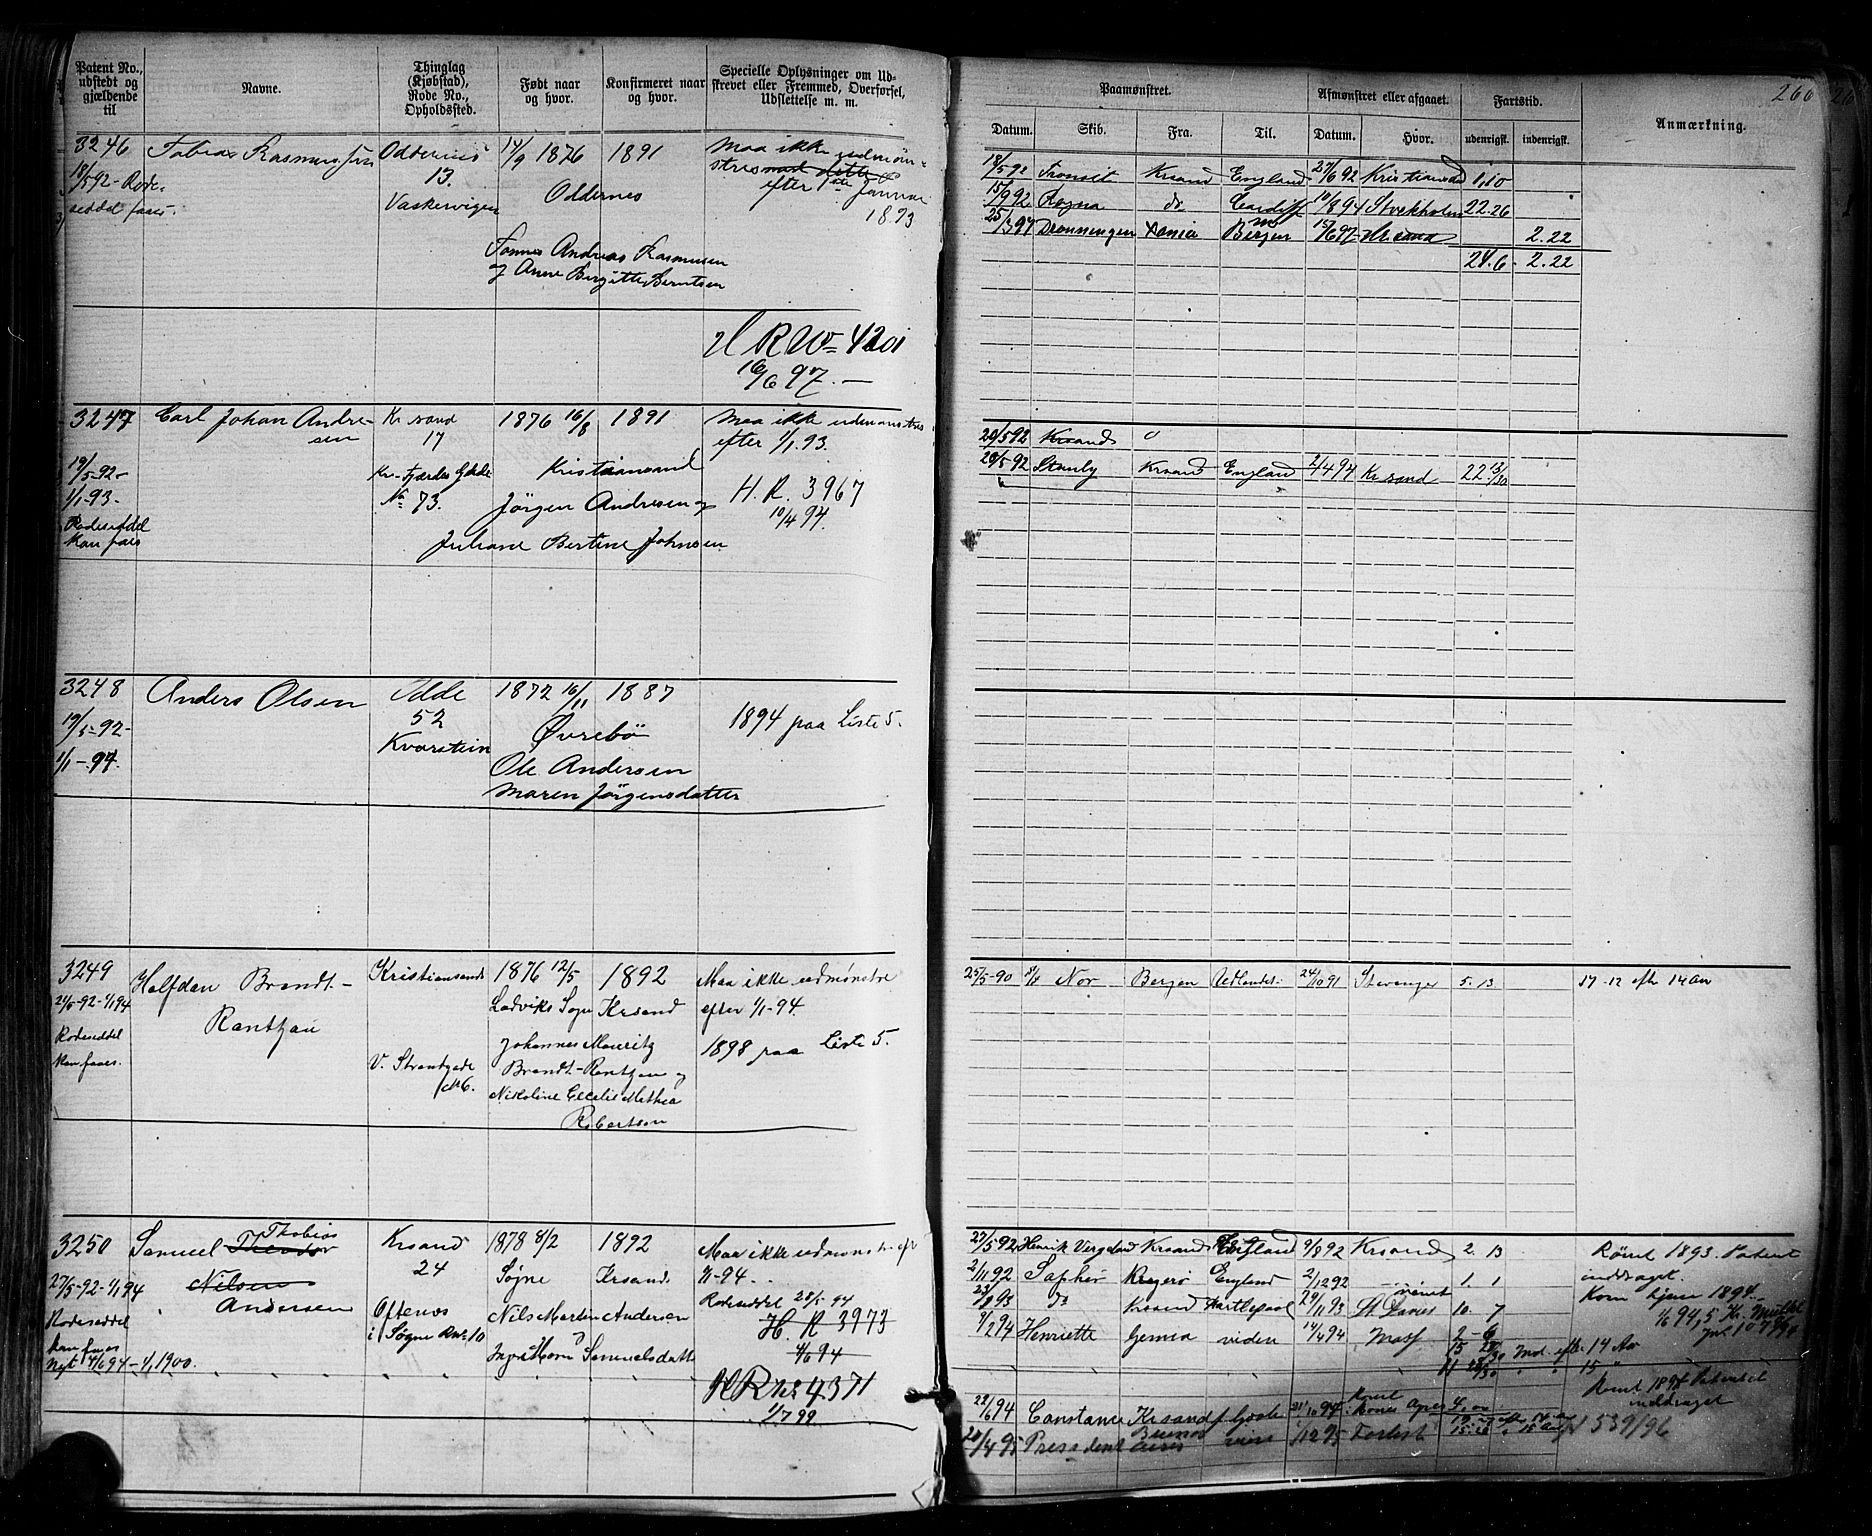 Patent No., udstedt og gjældende til
Navne.
Thinglag (Kjøbstad), Rode No., Opholdssted.
Født naar og hvor.
Konfirmeret naar og hvor.
Specielle Oplysninger om Udskrevet eller Fremmed, Overførsel, Udslettelse m. m.
3246
18/5 92 - Rodeseddel faaes.
Tobias Rasmussen
Oddernes
13.
Vaskervigen
14/9 1876
Oddernes
1891
Maa ikke udmønstres
efter 1ste Januar
1893
Tønnes Andreas Rasmussen
og Anne Birgitte Berntsen
H R No 4201
16/6 97.-
3247
19/5-92-
1/1-93-
Rodeseddel
kan faaes
Carl Johan Andresen
Kr sand
17
Kr. Fjærdes Gade
No 73.
1876 16/8
1891
Kristiansand
Jörgen Andresen og
Juliane Bertine Johnsen
Maa ikke udmønstres
efter 1/1.93.
H. R. 3967
10/4 94.
3248
19/5-92-
1/1-94.
Anders Olsen
Odde
52
Kvarstein
1872 16/11
1887
Øvrebö
Ole Andersen
Maren Jörgensdatter
1894 paa Liste 5.
3249
24/5-92-1/1 94
Rodeseddel
kan faaes.
Halfdan Brandt-
Rantzau
Kristiansand
V. Strandgade
No 6.
1876 12/5
1892
Ladviks Sogn
Krsand
Johannes Mauritz
Brandt-Rantzau og
Nikoline Cecelie Methea
Robertson
Maa ikke udmønstre
efter 1/1-94.
1898 paa Liste 5.
3250
27/5-92-1/1 94
Rodeseddel
kan faaes
Nyt 4/6 94 - 1/1 1900.
Samuel Theodor Thobias
Nilsen
Andersen
Krsand
24
Oftenes
i Søgne Rno 10
1878 8/2
1892
Søgne
Krsand
Nils Martin Andersen
Samuelsdatter
Maa ikke udmønstr. eft
1/1-94.
Rodeseddel 28/5 94
H. R 3973
4/6 94
HR No 4371
1/7 99
266
Paamønstret.
Afmønstret eller afgaaet.
Fartstid.
Anmærkning.
Datum.
Skib.
Fra.
Til.
Datum.
Hvor.
udenrigsk.
indenrigsk.
18/5 92 Transit Krsand England 27/6 92 Kristiansand 1.10
15/9 92 Ragna do Cardiff 10/8 94 Stockholm 22.26
25/3 97 Dronningen Xania Bergen 15/6 97 Krsand 2.22
24.6 - 2.22
20/5 92 Krsand
20/5 92 Stanly Krsand England 2/4 94 Kr sand 22 13/30
25/5-90 Nor Bergen Udlandet 24/10 91 Stavanger 5.13 17-12 efter 14 Aar
27/5 92 Henrik Vergeland Krsand England 9/8 92 Krsand 2. 13
Rømt 1893. Patent
inddraget.
2/11 92 Saphir Kragerö England 2/12 92 1. 1
Kom hjem 1894.
23/8 93 do Krsand Hartlepool 29/11 93 St Davis 10. 7
9/2 94 Henriette Genua viden 14/4 94 2-6
15 28/30 Ind. eft. 14 Aar
11 28/30 " " 15 "
Rømt 1894 Patentet
inddraget
22/6 94 Constance Krsand 21/10 94
20/4 95 President Buenos Aires videre 1/12 95 Forlist
539/96